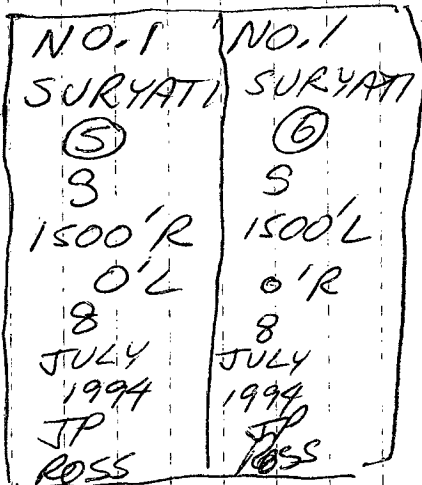 NO.1
SURYATI
5
S
1500'R
0'L
8
JULY
1994
JP
ROSS
NO.1
SURYATI
6
S
1500'L
0'R
8
JULY
1994
JP
ROSS